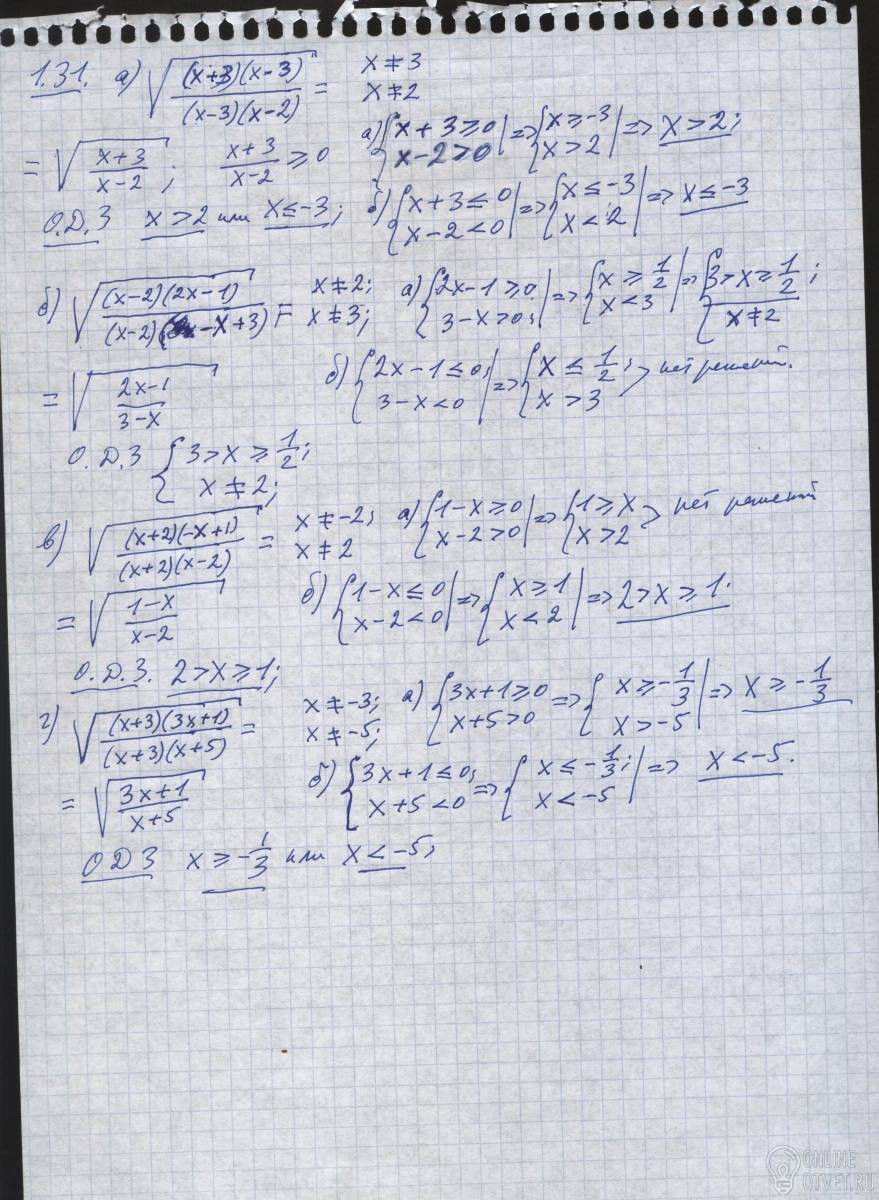 1.31. а) √((x+3)(x-3)/(x-3)(x-2)) = x≠3 x≠2
= √(x+3/x-2); x+3/x-2 ≥ 0 а) {x+3≥0 x-2>0 | => {x≥-3 x>2 | => x>2;
О.Д.З x>2 или x≤-3; б) {x+3≤0 x-2<0 | => {x≤-3 x<2 | => x≤-3
б) √((x-2)(2x-1)/(x-2)(-x+3)) = x≠2; x≠3; а) {2x-1≥0 3-x>0; | => {x≥1/2 x<3 | => {3>x≥1/2; x≠2
= √(2x-1/3-x) б) {2x-1≤0; 3-x<0 | => {x≤1/2; x>3 > нет решений.
О.Д.З {3>x≥1/2; x≠2;
в) √((x+2)(-x+1)/(x+2)(x-2)) = x≠-2; x≠2 а) {1-x≥0 x-2>0 | => {1≥x x>2 > нет решений
= √(1-x/x-2) б) {1-x≤0 x-2<0 | => {x≥1 x<2 | => 2>x≥1.
О.Д.З. 2>x≥1;
г) √((x+3)(3x+1)/(x+3)(x+5)) = x≠-3; x≠-5; а) {3x+1≥0 x+5>0 => {x≥-1/3 x>-5 | => x≥-1/3
= √(3x+1/x+5) б) {3x+1≤0; x+5<0 => {x≤-1/3; x<-5 | => x<-5.
ОДЗ x≥-1/3 или x<-5;
ONLINE
OTVET.RU